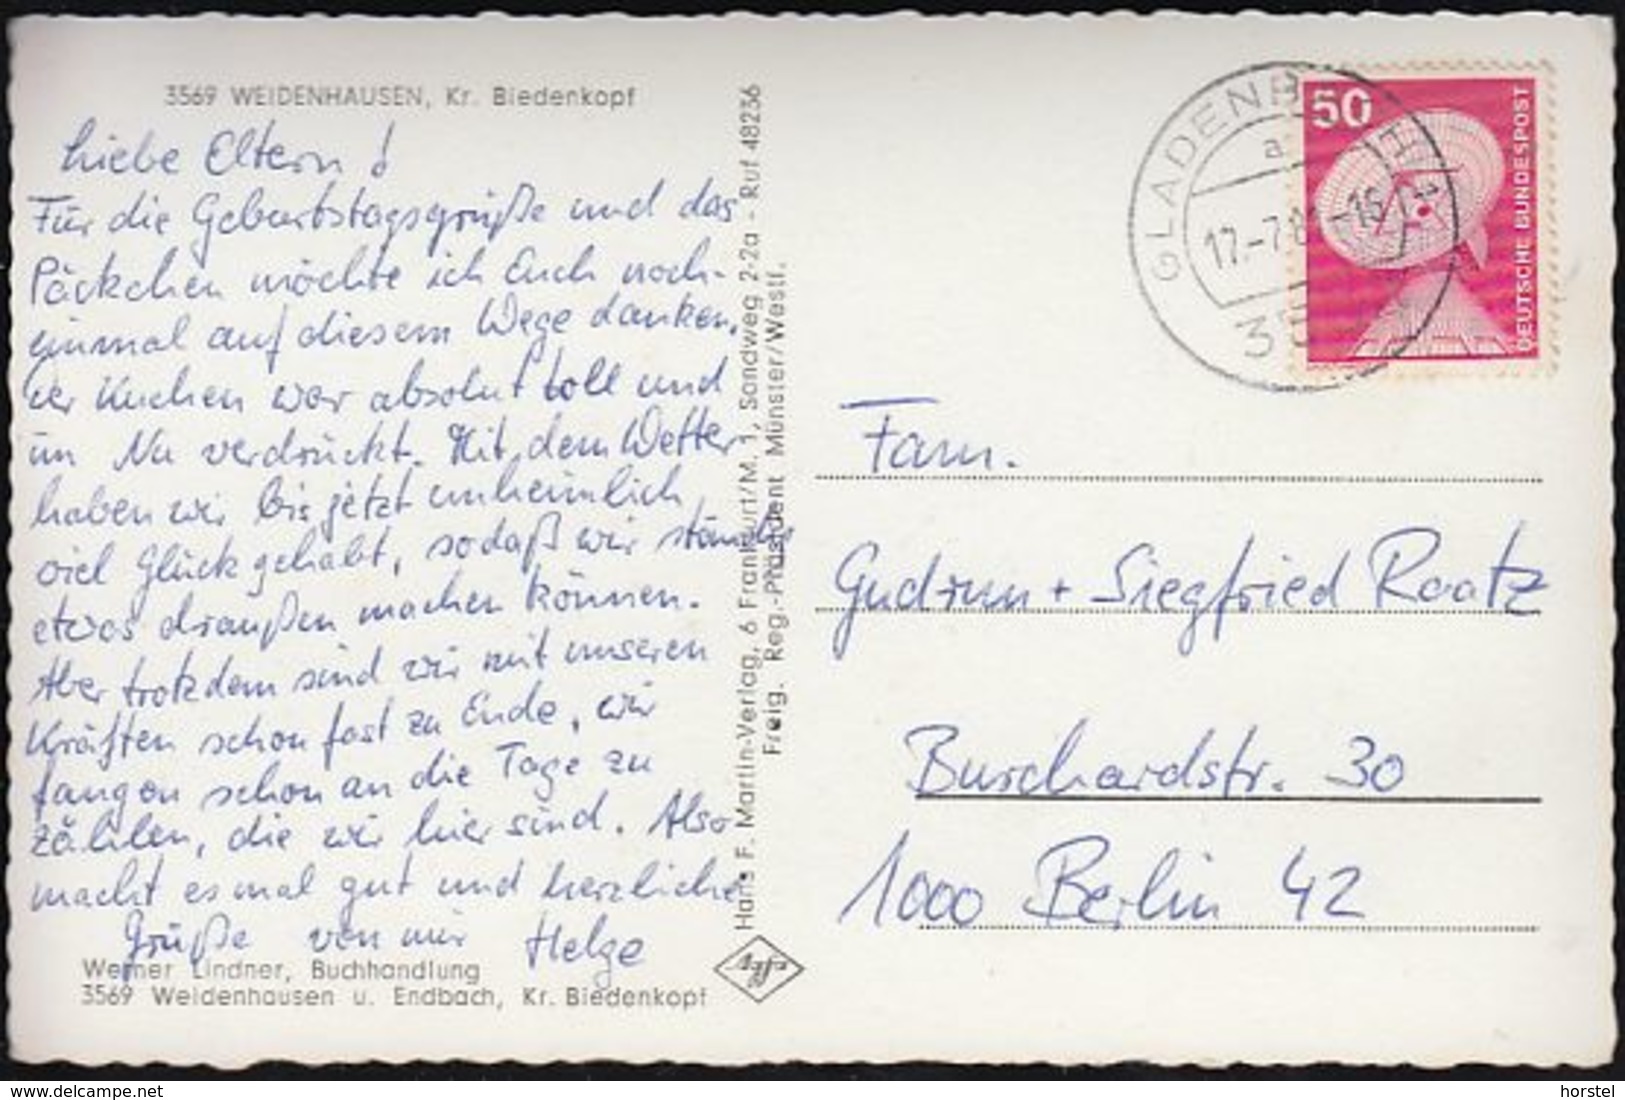 3569 WEIDENHAUSEN, Kr. Biedenkopf
Liebe Eltern!
Für die Geburtstagsgrüße und das
Päckchen möchte ich Euch noch-
einmal auf diesem Wege danken.
Der Kuchen war absolut toll und
im Nu verdrückt. Mit dem Wetter
haben wir bis jetzt unheimlich
viel Glück gehabt, sodaß wir ständig
etwas draußen machen können.
Aber trotzdem sind wir mit unseren
Kräften schon fast zu Ende, wir
fangen schon an die Tage zu
zählen, die wir hier sind. Also
macht es mal gut und herzliche
Grüße von mir Helge
Werner Lindner, Buchhandlung
3569 Weidenhausen u. Endbach, Kr. Biedenkopf
Hans F. Martin-Verlag, 6 Frankfurt/M. 1, Sandweg 2-2a - Ruf 48236
Freig. Reg.-Präsident Münster/Westf.
GLADENB
a
17.-7.8
-16
50
DEUTSCHE BUNDESPOST
Fam.
Gudrun + Siegfried Raatz
Burchardstr. 30
1000 Berlin 42
www.delcampe.net
horstel